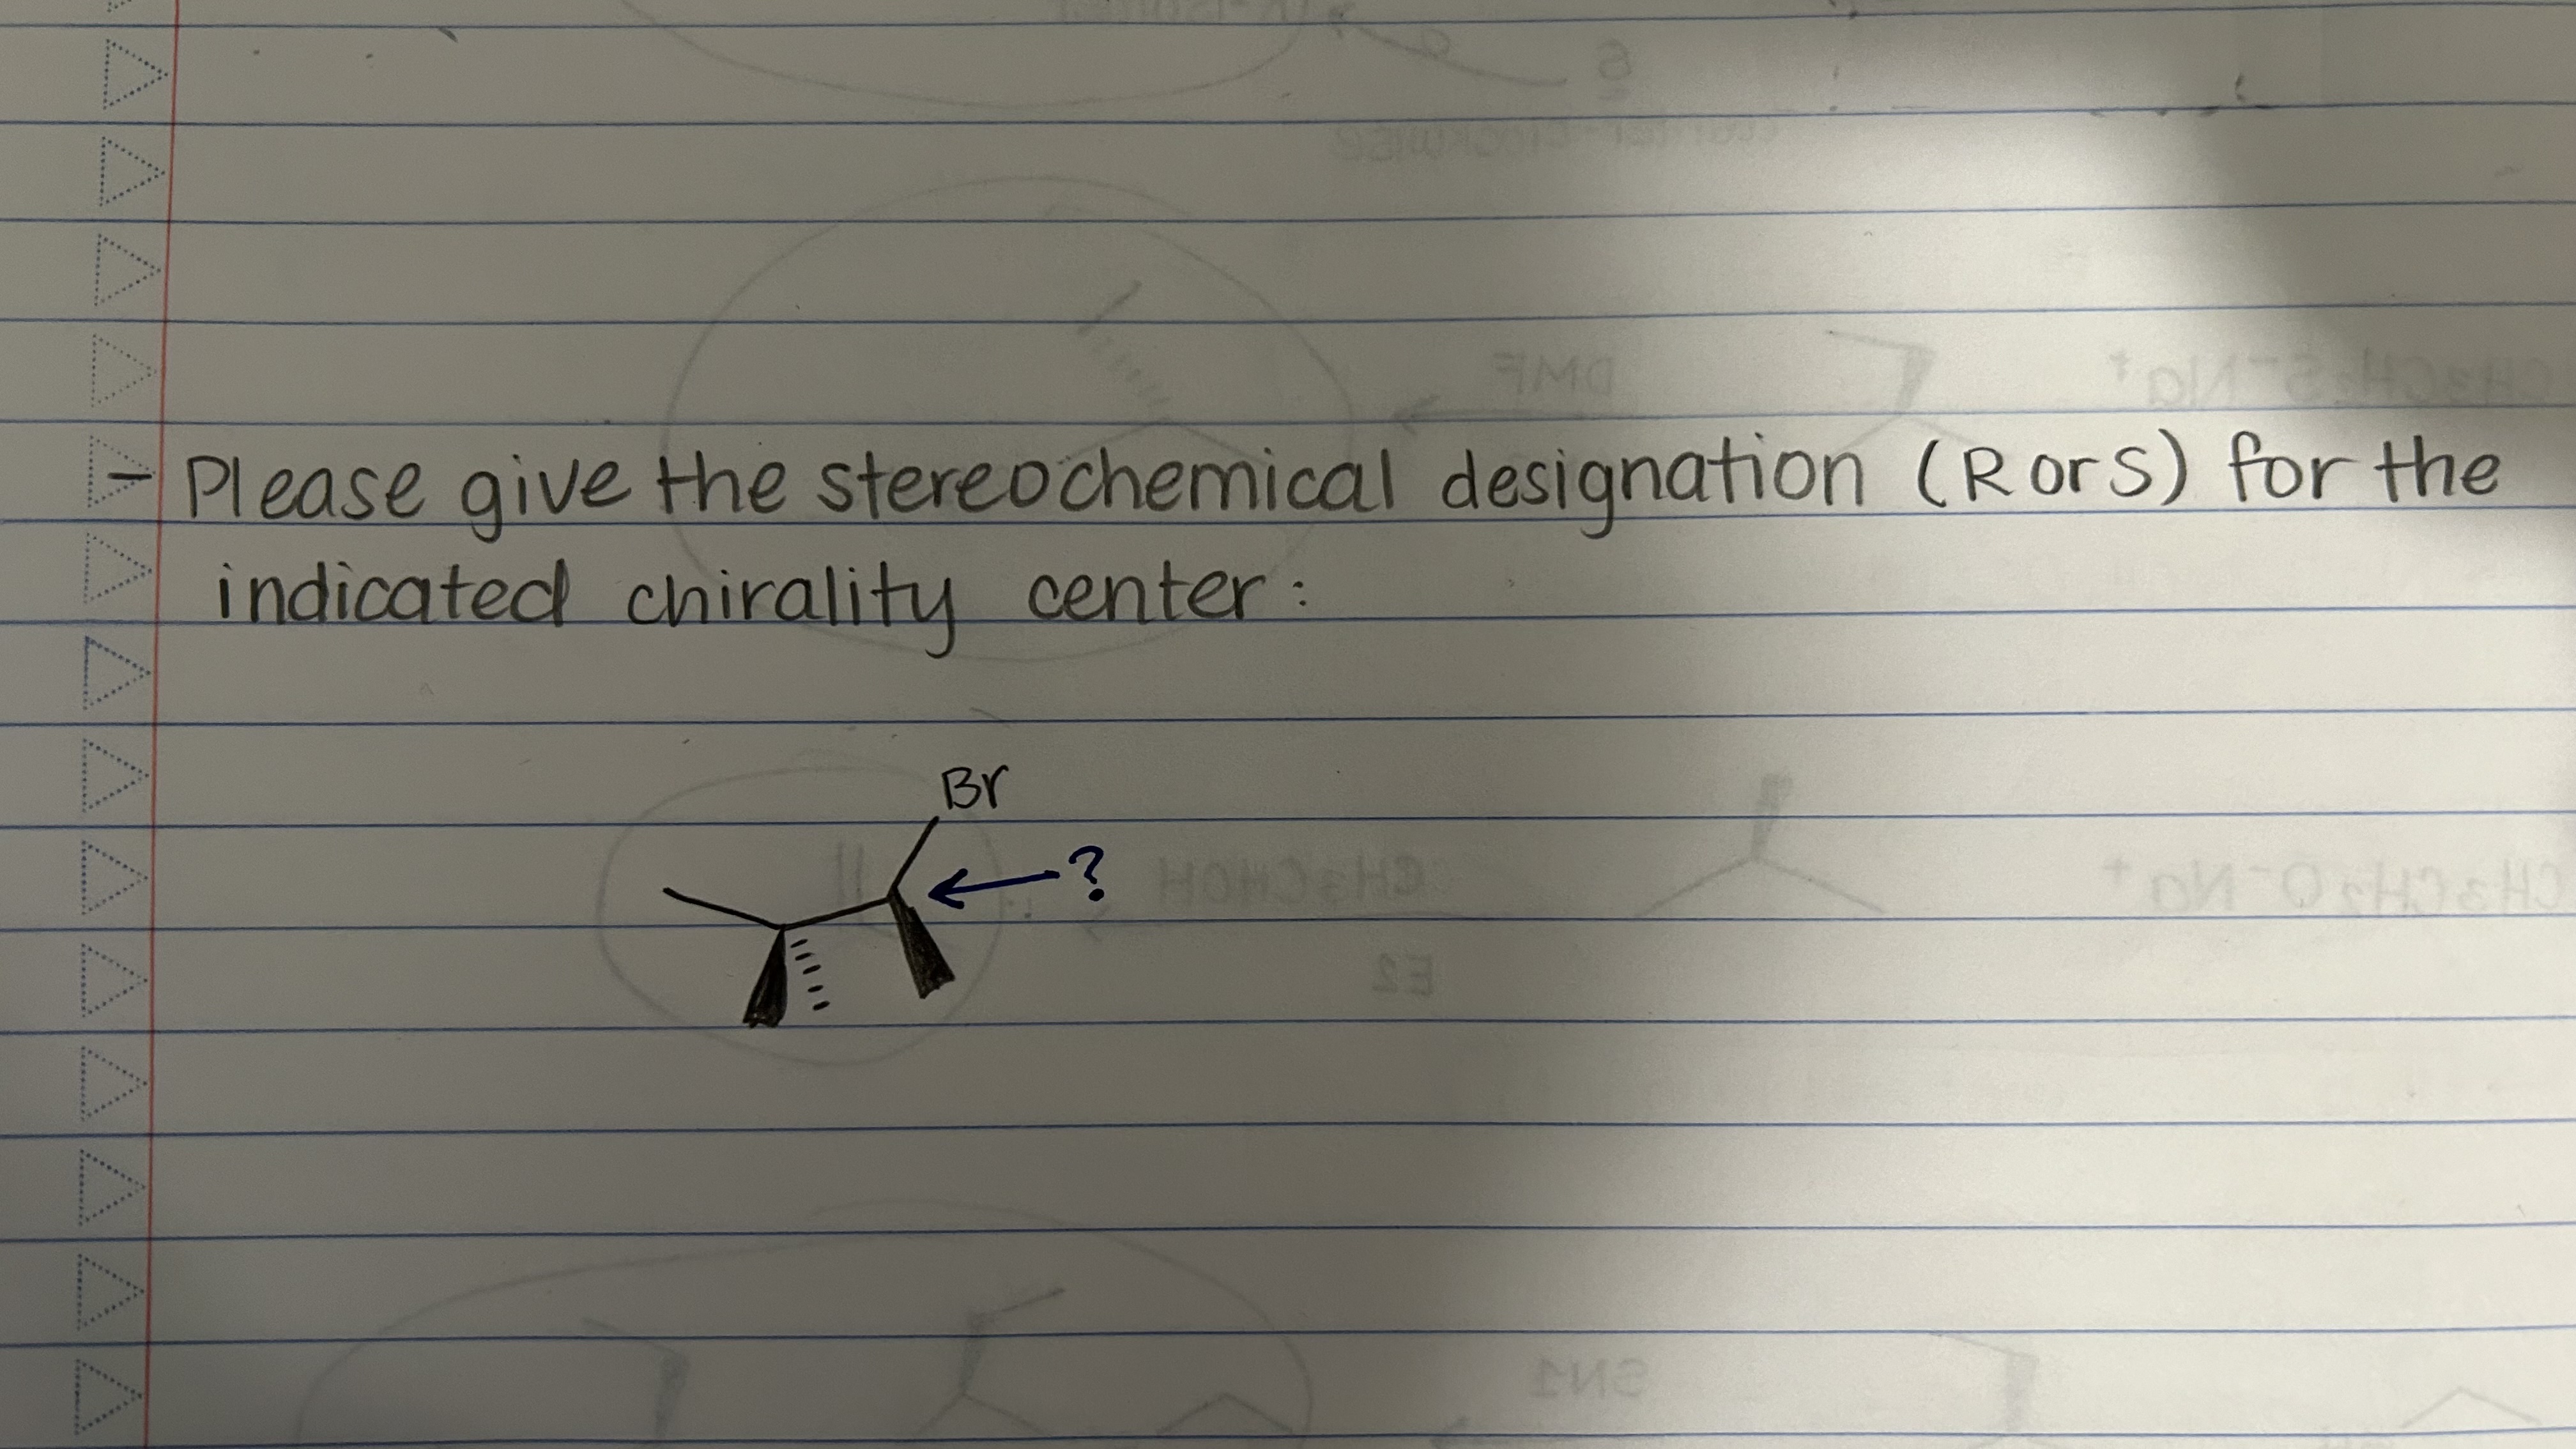 - Please give the stereochemical designation (R or S) for the
indicated chirality center:
Br
?